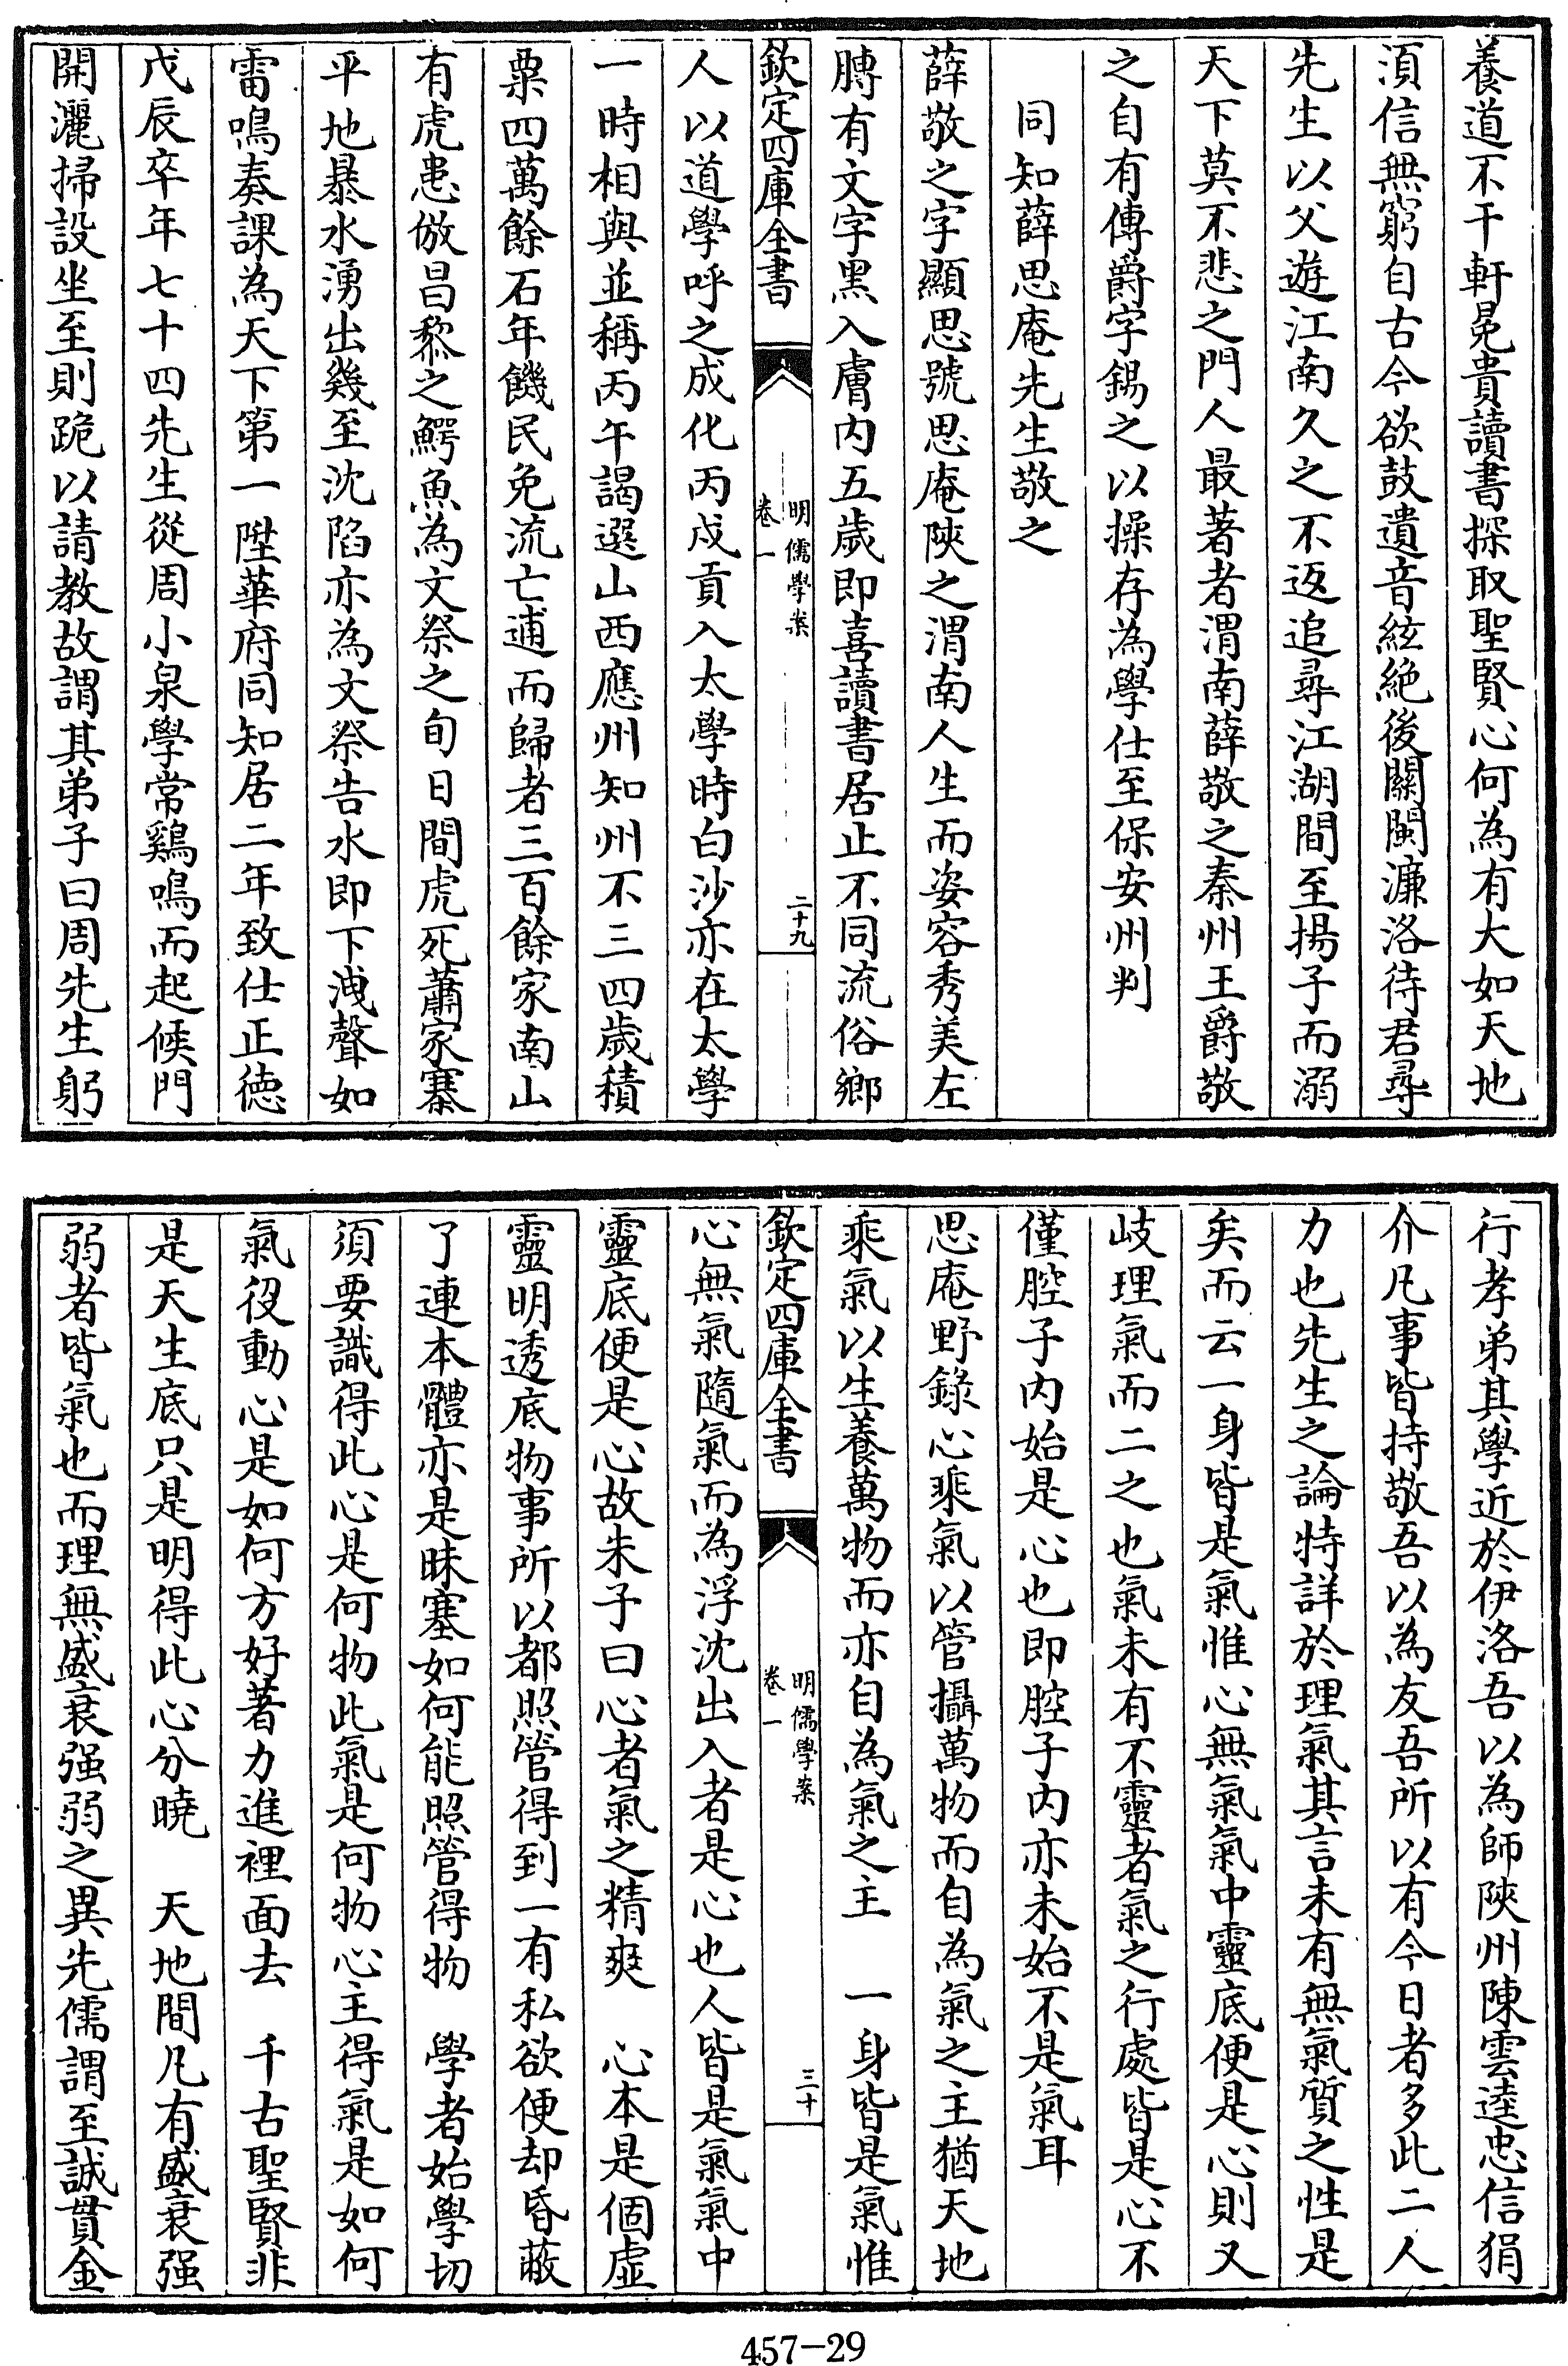 養道不干軒冕貴讀書探取聖賢心何為有大如天地
須信無窮自古今欲鼓遺音絃絶後關閩濂洛待君尋
先生以父遊江南久之不返追尋江湖間至揚子而溺
天下莫不悲之門人最著者渭南薛敬之秦州王爵敬
之自有傳爵字錫之以操存為學仕至保安州判
同知薛思庵先生敬之
薛敬之字顯思號思庵陝之渭南人生而姿容秀美左
膊有文字黑入膚内五歲即喜讀書居止不同流俗鄉
欽定四庫全書
明儒學案
卷一
二十九
人以道學呼之成化丙戌貢入太學時白沙亦在太學
一時相與並稱丙午謁選山西應州知州不三四歲積
粟四萬餘石年饑民免流亡逋而歸者三百餘家南山
有虎患倣昌黎之鰐魚為文祭之旬日間虎死蕭家寨
平地暴水湧出幾至沈陷亦為文祭告水即下洩聲如
雷鳴奏課為天下第一陞華府同知居二年致仕正德
戊辰卒年七十四先生從周小泉學常鷄鳴而起候門
開灑掃設坐至則跪以請教故謂其弟子曰周先生躬
行孝弟其學近於伊洛吾以為師陝州陳雲逵忠信狷
介凡事皆持敬吾以為友吾所以有今日者多此二人
力也先生之論特詳於理氣其言未有無氣質之性是
矣而云一身皆是氣惟心無氣氣中靈底便是心則又
岐理氣而二之也氣未有不靈者氣之行處皆是心不
僅腔子内始是心也即腔子内亦未始不是氣耳
思庵野錄心乘氣以管攝萬物而自為氣之主猶天地
乘氣以生養萬物而亦自為氣之主　一身皆是氣惟
欽定四庫全書
明儒學案
卷一
三十
心無氣隨氣而為浮沈出入者是心也人皆是氣氣中
靈底便是心故朱子曰心者氣之精爽　心本是個虛
靈明透底物事所以都照管得到一有私欲便却昏蔽
了連本體亦是昧塞如何能照管得物　學者始學切
須要識得此心是何物此氣是何物心主得氣是如何
氣役動心是如何方好著力進裡面去　千古聖賢非
是天生底只是明得此心分曉　天地間凡有盛衰强
弱者皆氣也而理無盛衰强弱之異先儒謂至誠貫金
457-29